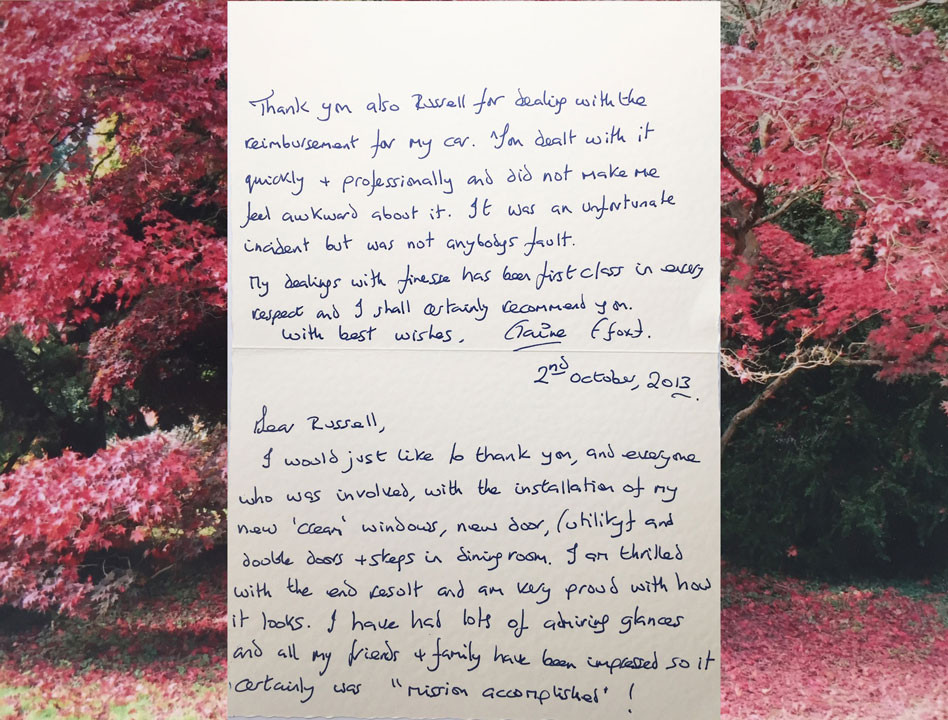 Thank you also Russell for dealing with the
reimbursement for my car. You dealt with it
quickly + professionally and did not make me
feel awkward about it. It was an unfortunate
incident but was not anybodys fault.
My dealings with finesse has been first class in every
respect and I shall certainly recommend you.
with best wishes,
2nd October, 2013.
Dear Russell,
I would just like to thank you, and everyone
who was involved, with the installation of my
new 'cream' windows, new door, (utility) and
double doors + steps in dining room. I am thrilled
with the end result and am very proud with how
it looks. I have had lots of admiring glances
and all my friends + family have been impressed so it
certainly was "mission accomplished" !